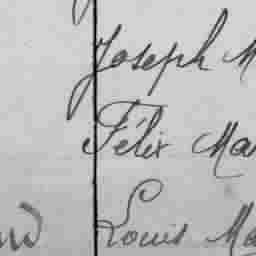 Joseph M
Félix Ma
Louis Ma